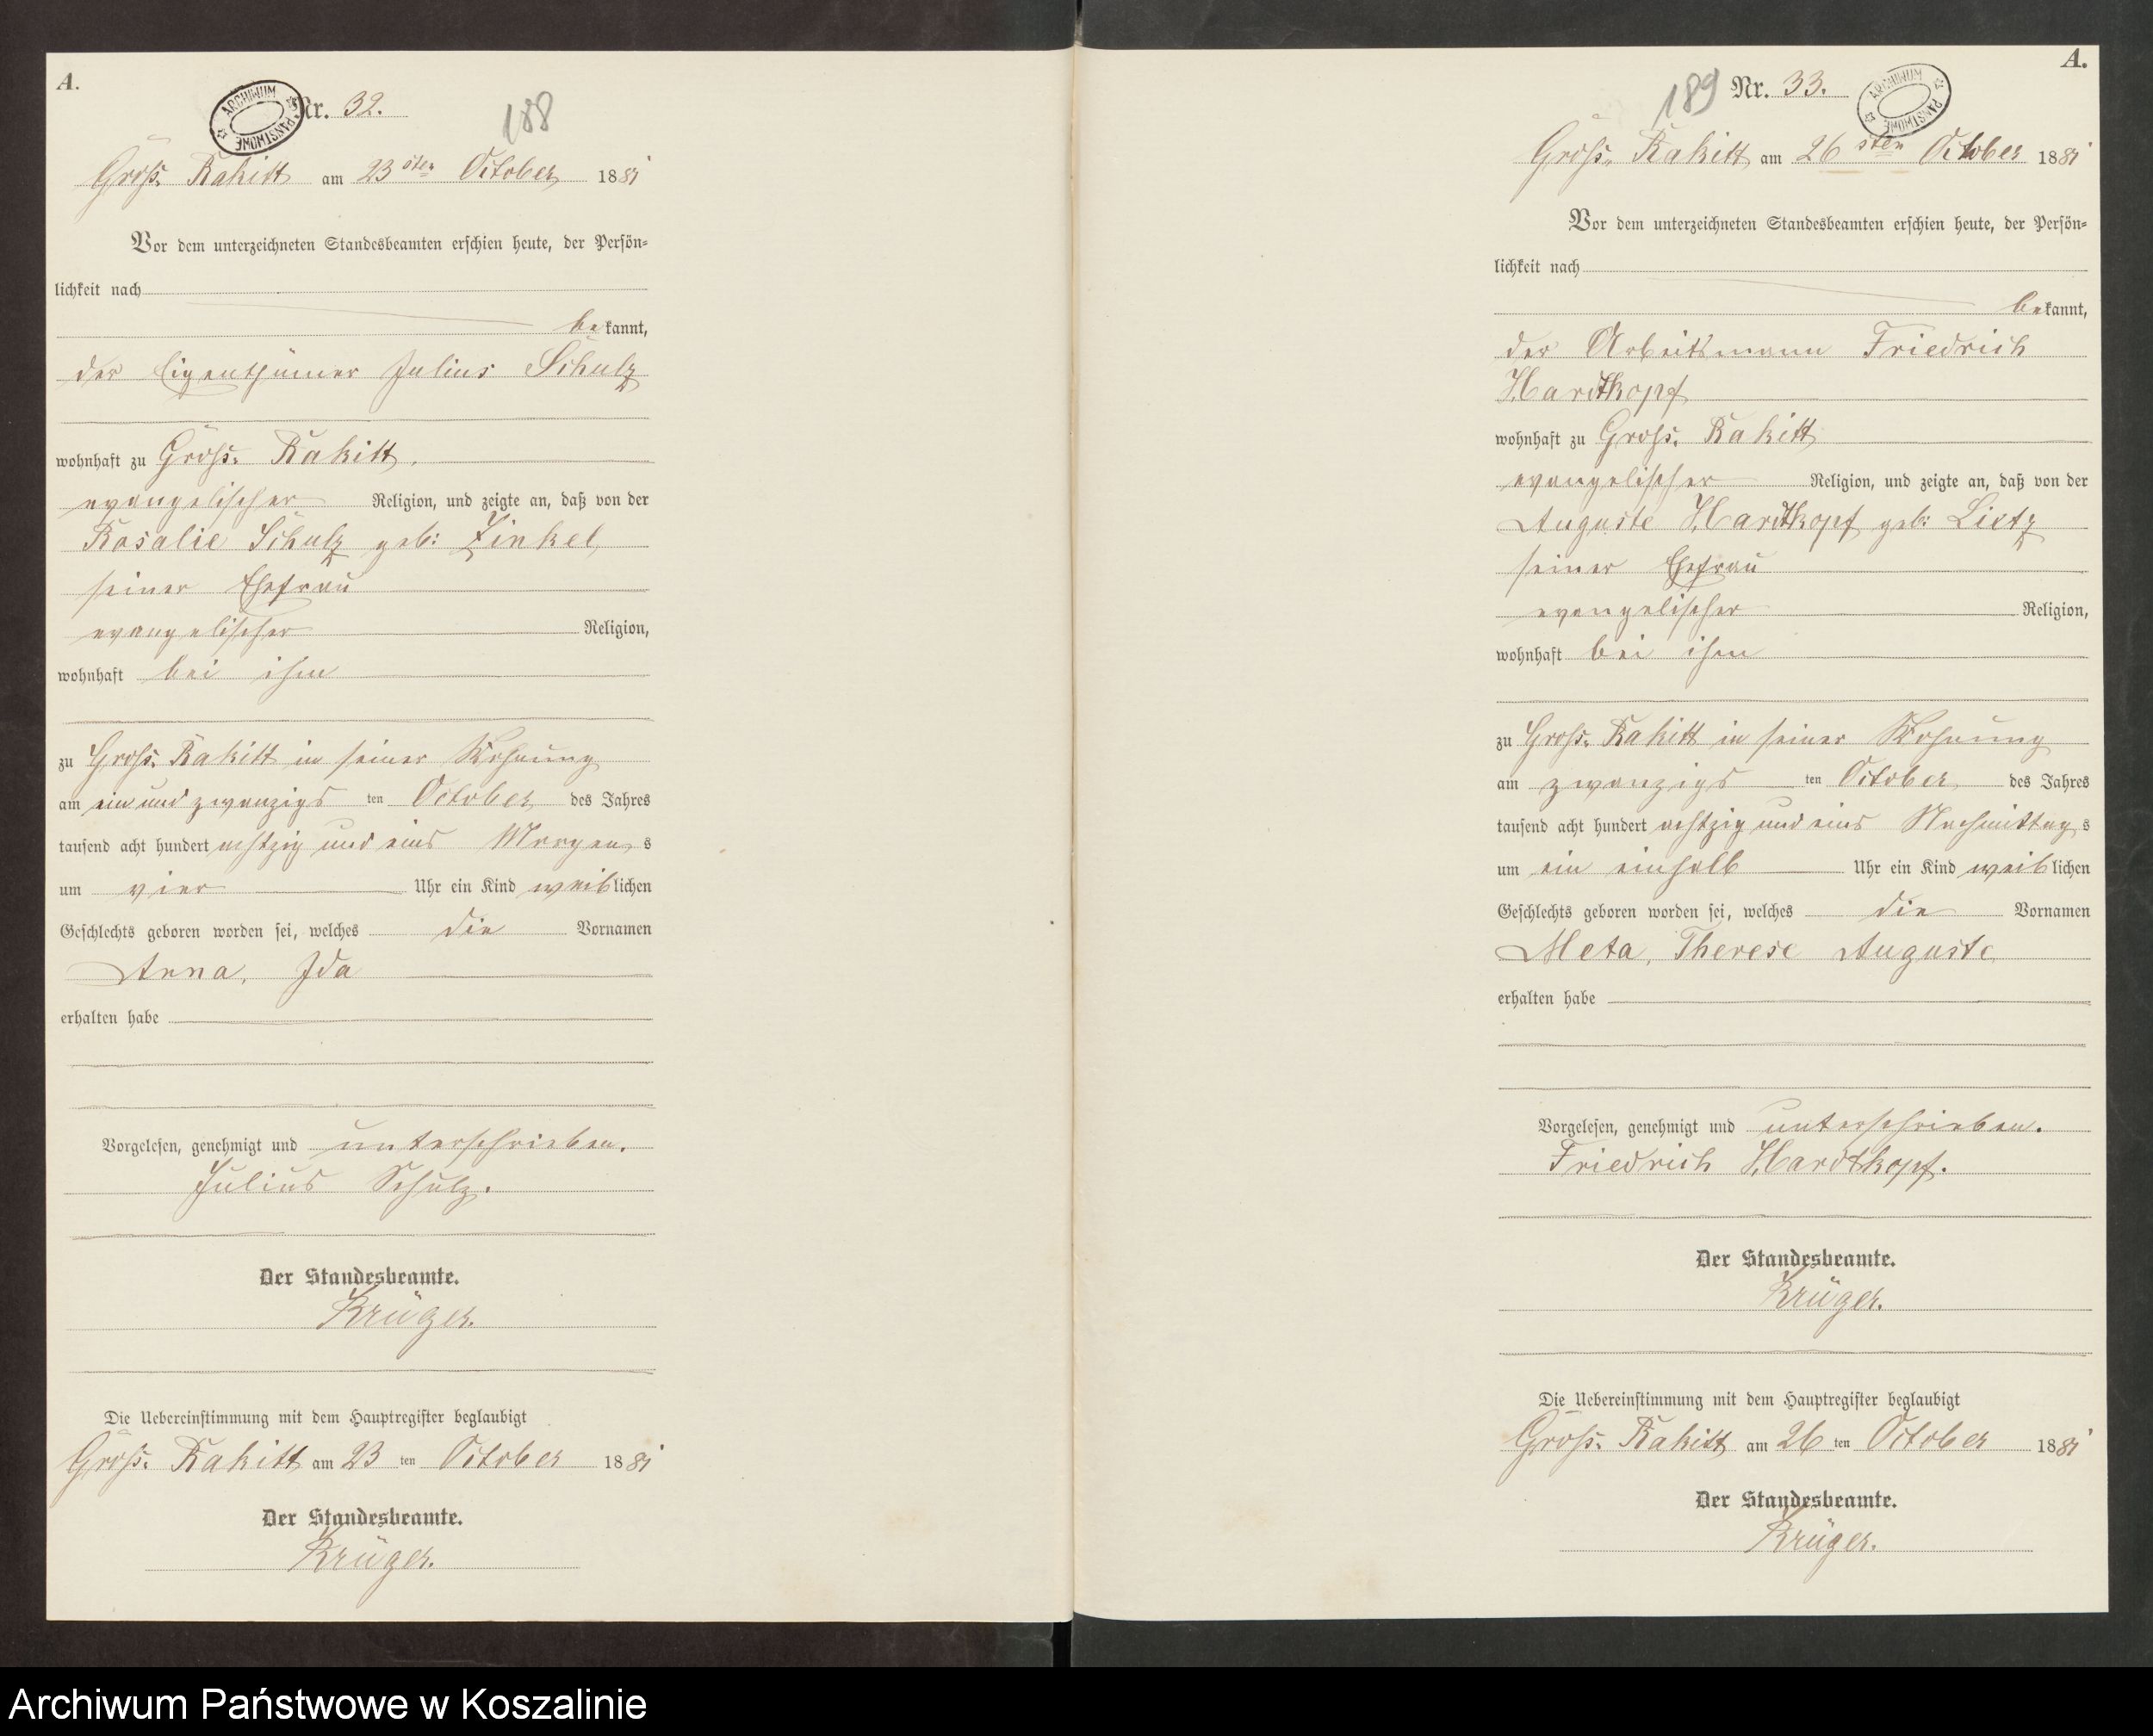 A.
ARCHIWUM PAŃSTWOWE
Nr. 32.
188
Groß. Rakitt am 23 sten October 1881
Vor dem unterzeichneten Standesbeamten erschien heute, der Persön-
lichkeit nach
bekannt,
der Eigenthümer Julius Schulz
wohnhaft zu Groß. Rakitt,
evangelischer Religion, und zeigte an, daß von der
Rosalie Schulz geb: Zinkel,
seiner Ehefrau
evangelischer Religion,
wohnhaft bei ihm
zu Groß. Rakitt in seiner Wohnung
am ein und zwanzigs ten October des Jahres
tausend acht hundert achtzig und eins Morgens
um vier Uhr ein Kind weiblichen
Geschlechts geboren worden sei, welches die Vornamen
Anna, Ida
erhalten habe
Vorgelesen, genehmigt und unterschrieben.
Julius Schulz.
Der Standesbeamte.
Krüger.
Die Uebereinstimmung mit dem Hauptregister beglaubigt
Groß. Rakitt am 23 ten October 1881
Der Standesbeamte.
Krüger.
A.
189
Nr. 33.
ARCHIWUM PAŃSTWOWE
Groß. Rakitt am 26 sten October 1881
Vor dem unterzeichneten Standesbeamten erschien heute, der Persön-
lichkeit nach
bekannt,
der Arbeitsmann Friedrich
Hardtkopf
wohnhaft zu Groß. Rakitt
evangelischer Religion, und zeigte an, daß von der
Auguste Hardtkopf geb: Lietz
seiner Ehefrau
evangelischer Religion,
wohnhaft bei ihm
zu Groß. Rakitt in seiner Wohnung
am zwanzigs ten October des Jahres
tausend acht hundert achtzig und eins Nachmittags
um ein einhalb Uhr ein Kind weiblichen
Geschlechts geboren worden sei, welches die Vornamen
Meta, Therese Auguste
erhalten habe
Vorgelesen, genehmigt und unterschrieben.
Friedrich Hardtkopf.
Der Standesbeamte.
Krüger.
Die Uebereinstimmung mit dem Hauptregister beglaubigt
Groß. Rakitt am 26 ten October 1881
Der Standesbeamte.
Krüger.
Archiwum Państwowe w Koszalinie